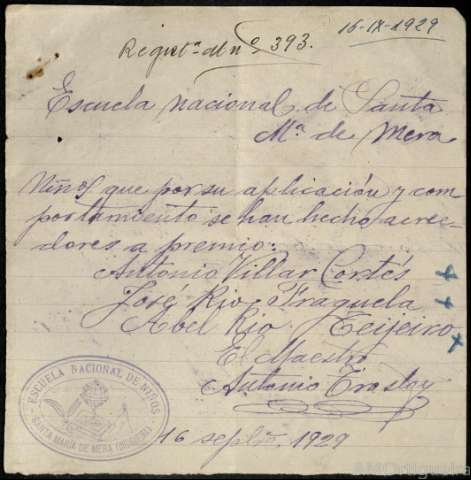 16-IX-1929
Registº al nº 393.
Escuela nacional de Santa
Mª de Mera
Niños que por su aplicación y com
portamiento se han hecho acree-
dores a premio:
Antonio Villar Cortés
José Rio Fraguela
Abel Rio Teijeiro
El Maestro
Antonio
ESCUELA NACIONAL DE NIÑOS
SANTA MARÍA DE MERA (ORTIGUEIRA)
16 septbre 1929
AMOrtigueira